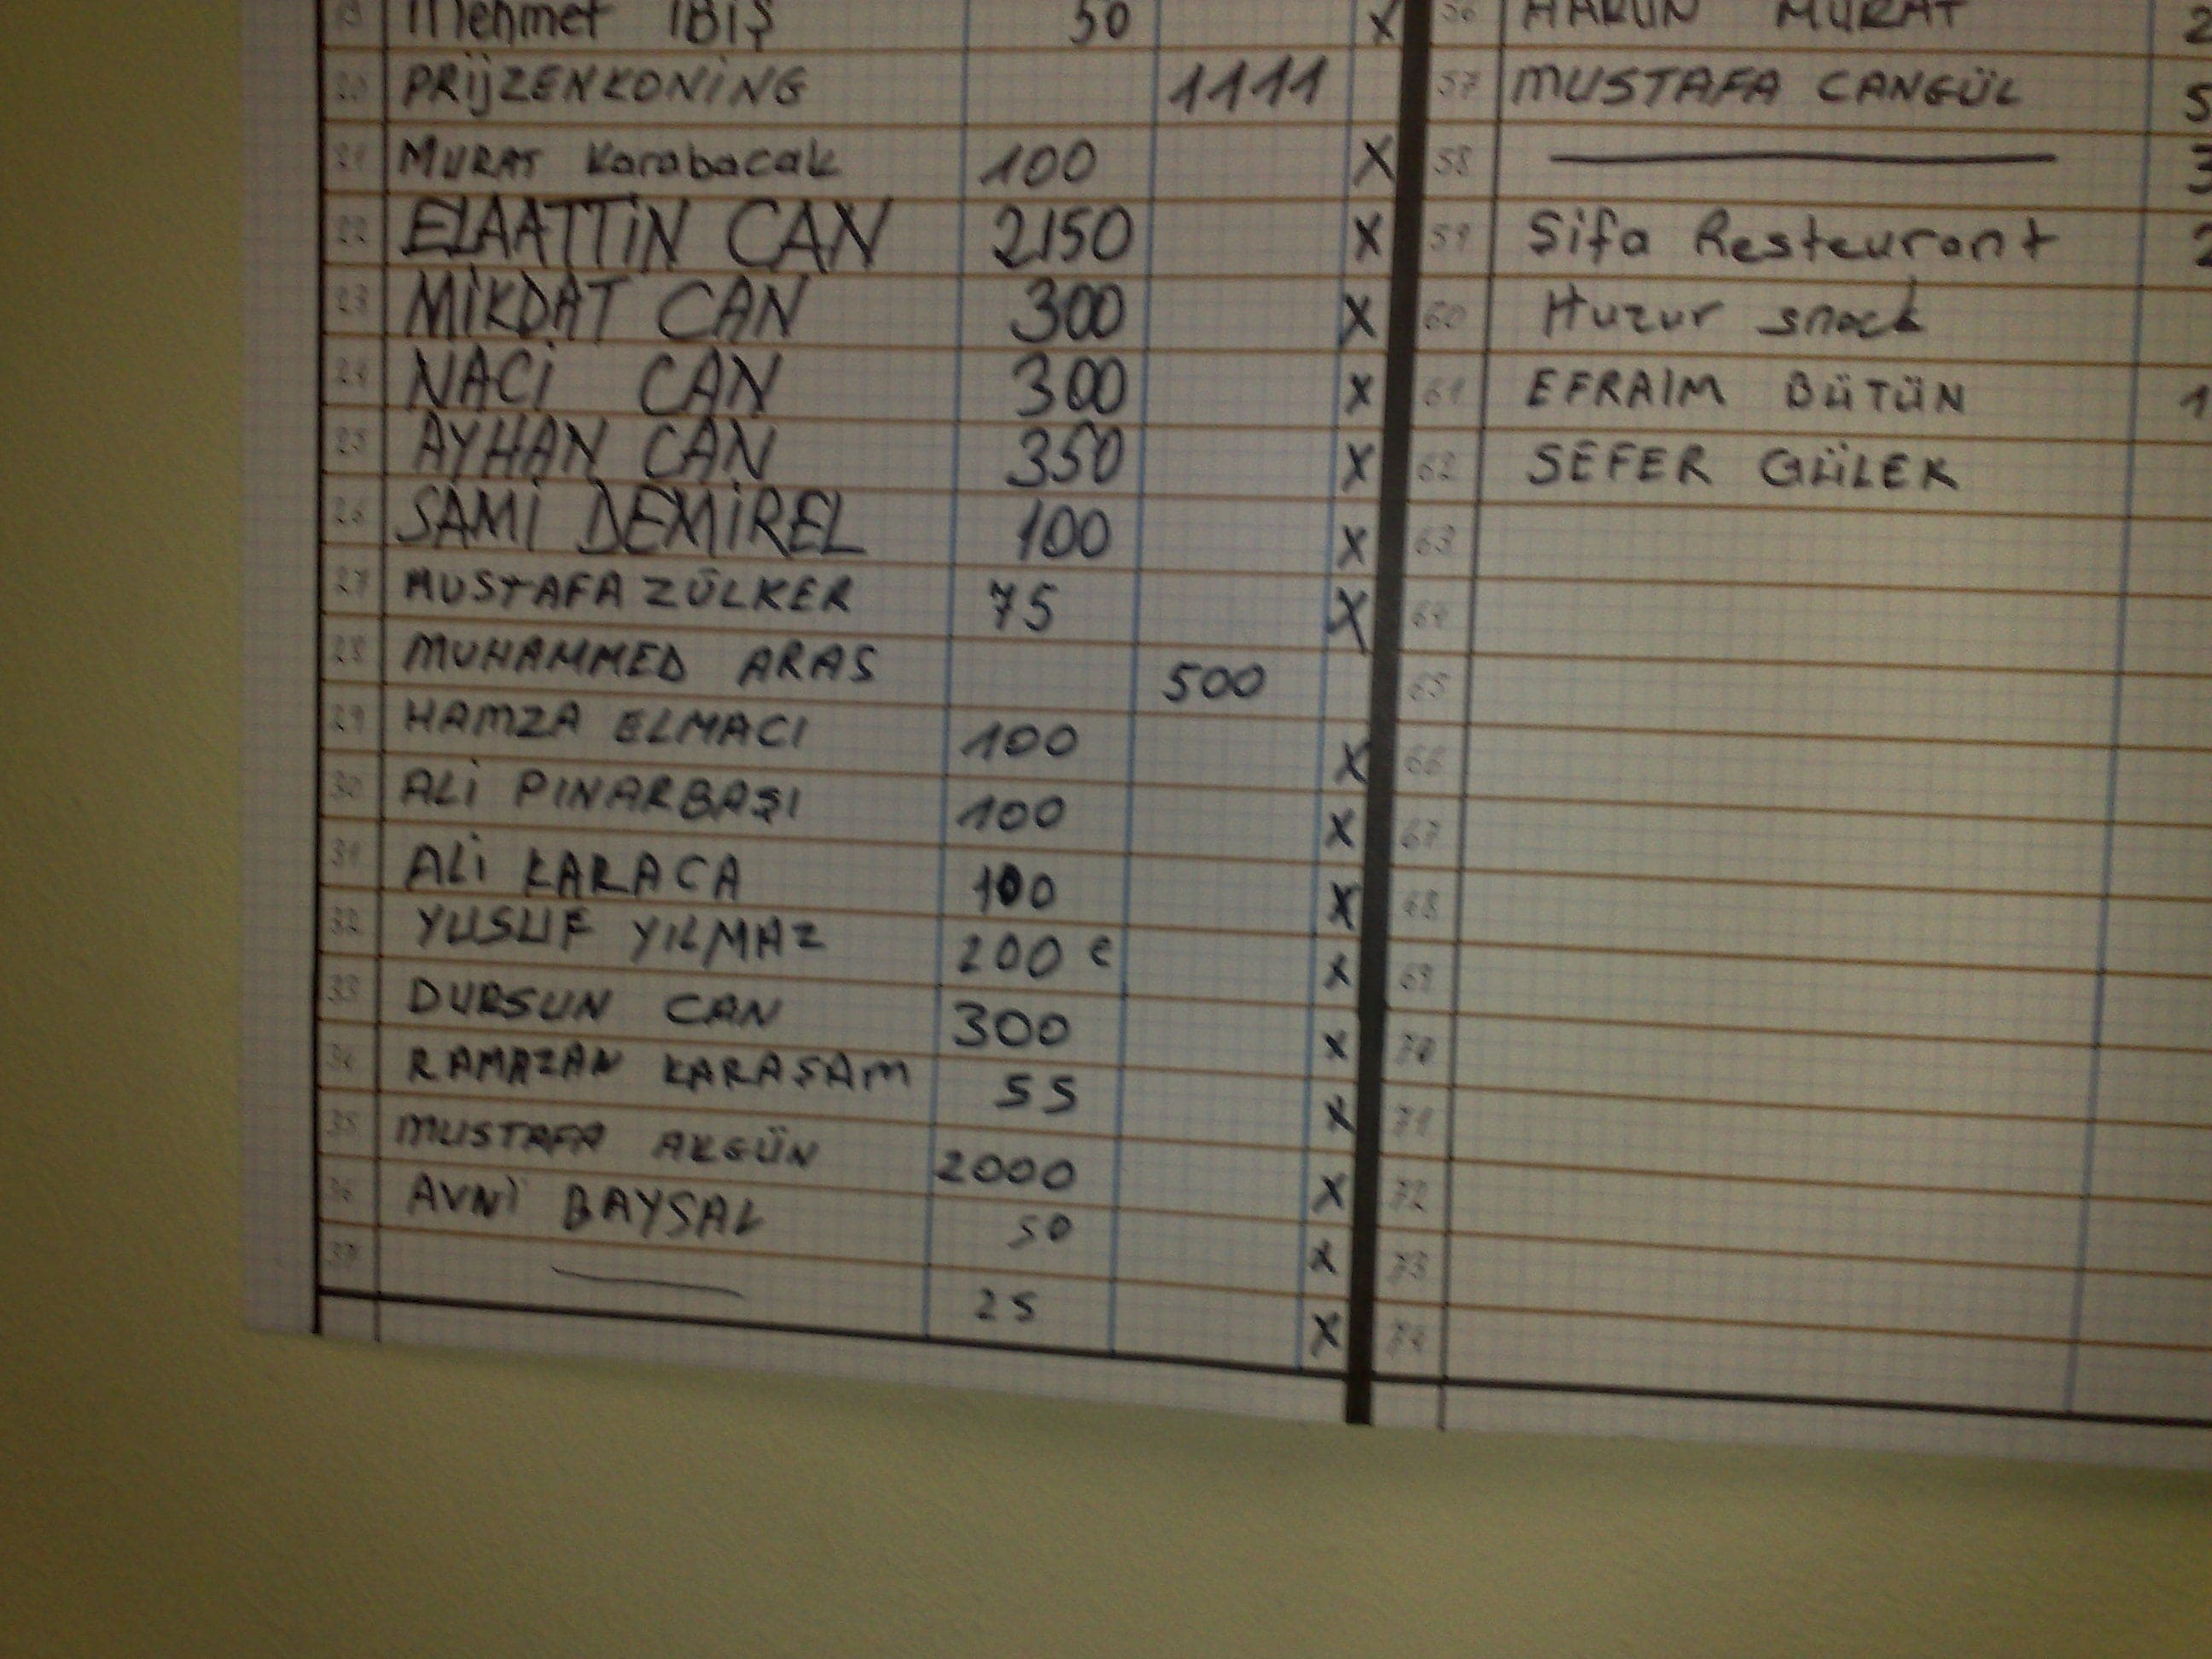 19 Mehmet IBIŞ 50 X
20 PRijZENKONiNG 1111
21 MURAT Karabacak 100 X
22 ELAATTiN CAN 2150 X
23 MiKDAT CAN 300 X
24 NACi CAN 300 X
25 AYHAN CAN 350 X
26 SAMi DEMiREL 100 X
27 MUSTAFA ZÜLKER 75 X
28 MUHAMMED ARAS 500
29 HAMZA ELMACI 100 X
30 ALi PINARBAŞI 100 X
31 ALi KARACA 100 X
32 YUSUF YILMAZ 200 € X
33 DURSUN CAN 300 X
34 RAMAZAN KARAŞAM 55 X
35 MUSTAFA AKGÜN 2000 X
36 AVNi BAYSAL 50 X
37 25 X
56 HARUN MURAT 2
57 MUSTAFA CANGÜL 5
58 3
59 Sifa Resteurant 2
60 Huzur snack
61 EFRAIM BÜTÜN 1
62 SEFER GÜLEK
63
64
65
66
67
68
69
70
71
72
73
74